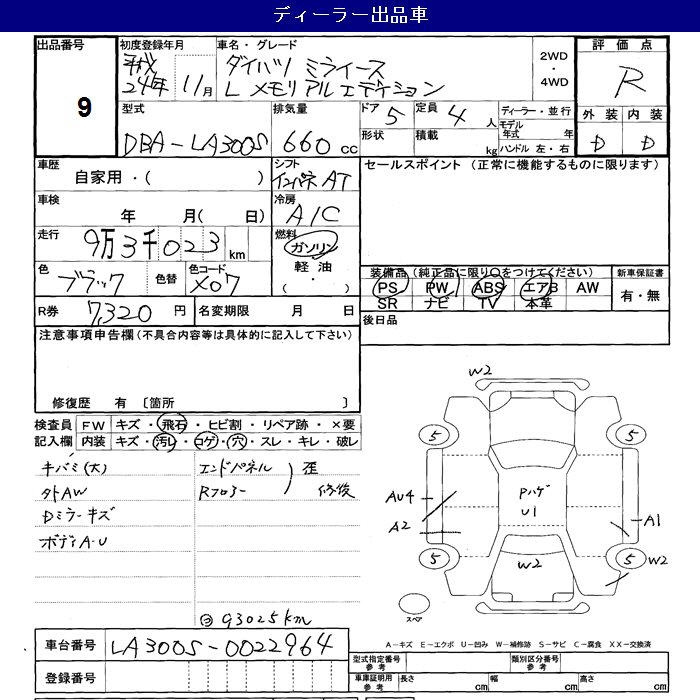 ディーラー出品車
出品番号 初度登録年月 車名・グレード 2WD・4WD 評価点
9 平成24年 11月 ダイハツ ミライース R
L メモリアルエディション
型式 排気量 ドア 5 定員 4 人 ディーラー・並行 外装 内装
DBA-LA300S 660 cc 形状 積載 kg モデル年式 年 D D
ハンドル 左・右
車歴 シフト セールスポイント (正常に機能するものに限ります)
自家用・( ) インパネ AT
車検 冷房
年 月( 日) A/C
走行 燃料
9万3千023 km ガソリン
軽油
・
( )
色 色替 色コード 装備品(純正品に限り○をつけてください) 新車保証書
ブラック X07 PS PW ABS エアB AW 有・無
SR ナビ TV 本革
R券 7,320 円 名変期限 月 日 後日品
注意事項申告欄(不具合内容等は具体的に記入して下さい)
修復歴 有 〔箇所 〕
検査員 FW キズ・飛石・ヒビ割・リペア跡・×要
記入欄 内装 キズ・汚レ・コゲ・穴・スレ・キレ・破レ
キバミ(大) エンドパネル 歪
外AW Rフロアー 修後
Dミラーキズ
ボディA・U
93025km
W2
5 5
AU4 Pハゲ
U1
A2 A1
5 5 W2
W2
スペア
A-キズ E-エクボ U-凹み W-補修跡 S-サビ C-腐食 XX-交換済
車台番号 LA300S-0022964
型式指定番号 参考 類別区分番号 参考
登録番号 車庫証明用 参考 長さ cm 幅 cm 高さ cm